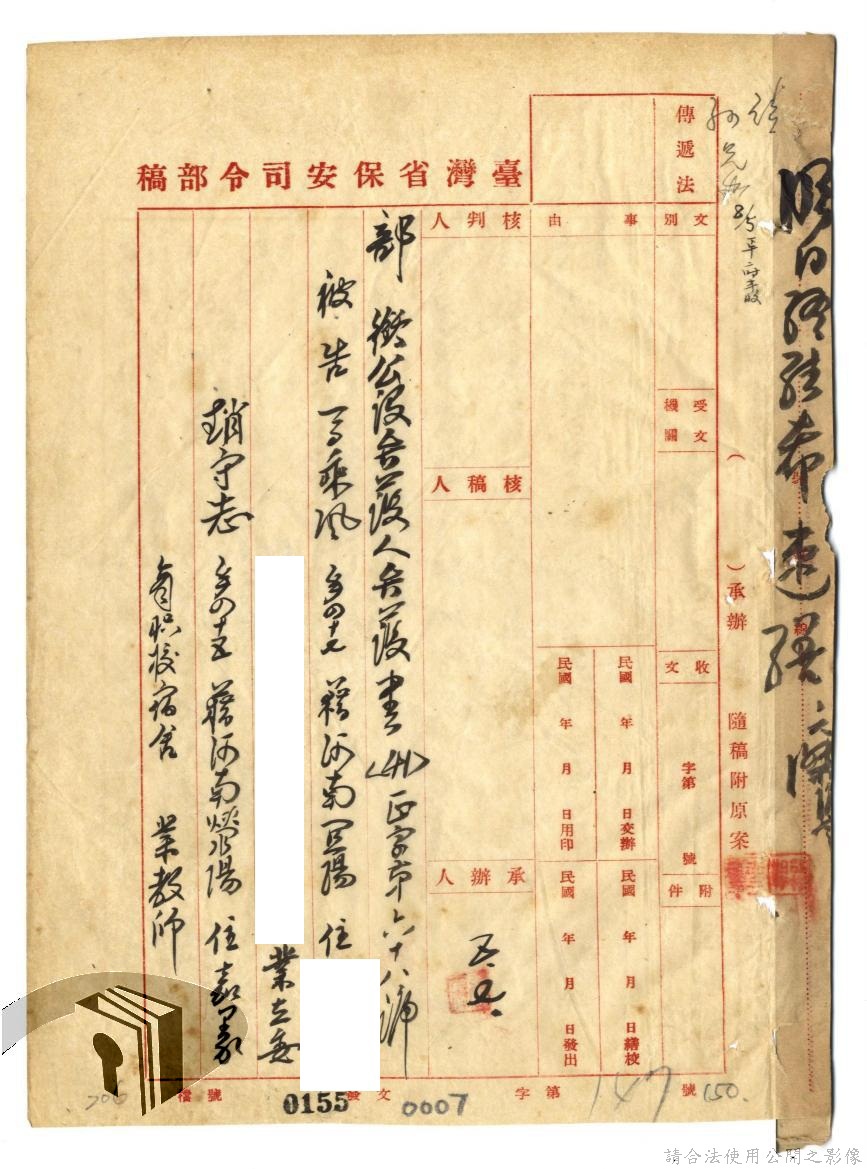 臺灣省保安司令部稿
傳遞法
文別
事由
受文機關
核判人
核稿人
承辦人
收文
字第 號
附件
民國 年 月 日交辦
民國 年 月 日用印
民國 年 月 日繕校
民國 年 月 日發出
( )承辦 隨稿附原案
部 銜公設辯護人辯護書 正字第六十八號
被告 馬乘風 年四十七 籍河南 陽 住
業立委
趙守志 年四十五 籍河南 陽 住嘉義
商职校宿舍 業教師
明日 希速繕
字第 147 號
150.
發文
0155
0007
檔號
700
請合法使用公開之影像